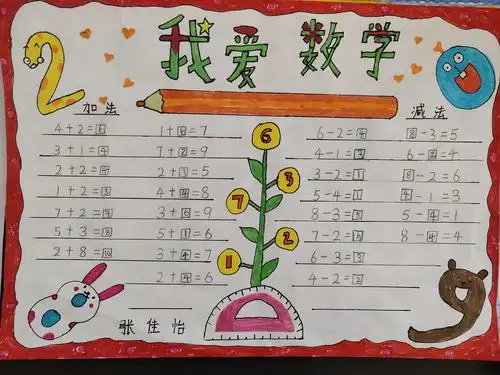 我爱数学
加法
4+2=6 1+6=7
3+1=4 7+2=9
2+2=4 2+3=5
1+2=3 4+4=8
7+2=9 3+6=9
5+3=8 5+1=6
2+8=10 3+4=7
2+4=6
减法
6-2=4 8-3=5
4-1=3 6-2=4
3-2=1 8-2=6
5-4=1 4-1=3
8-3=5 5-4=1
7-2=5 8-4=4
6-3=3
4-2=2
6
3
7
2
1
张佳怡